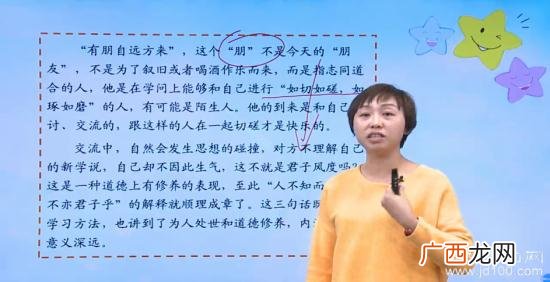 “有朋自远方来”，这个“朋”不是今天的“朋
友”，不是为了叙旧或者喝酒作乐而来，而是指志同道
合的人，他是在学问上能够和自己进行“如切如磋，如
琢如磨”的人，有可能是陌生人。他的到来是和自己
讨、交流的，跟这样的人在一起切磋才是快乐的。
交流中，自然会发生思想的碰撞，对方不理解自己
的新学说，自己却不因此生气，这不就是君子风度吗？
这是一种道德上有修养的表现，至此“人不知而
不亦君子乎”的解释就顺理成章了。这三句话
学习方法，也讲到了为人处世和道德修养，内
意义深远。
广西龙网
www.jd100.com